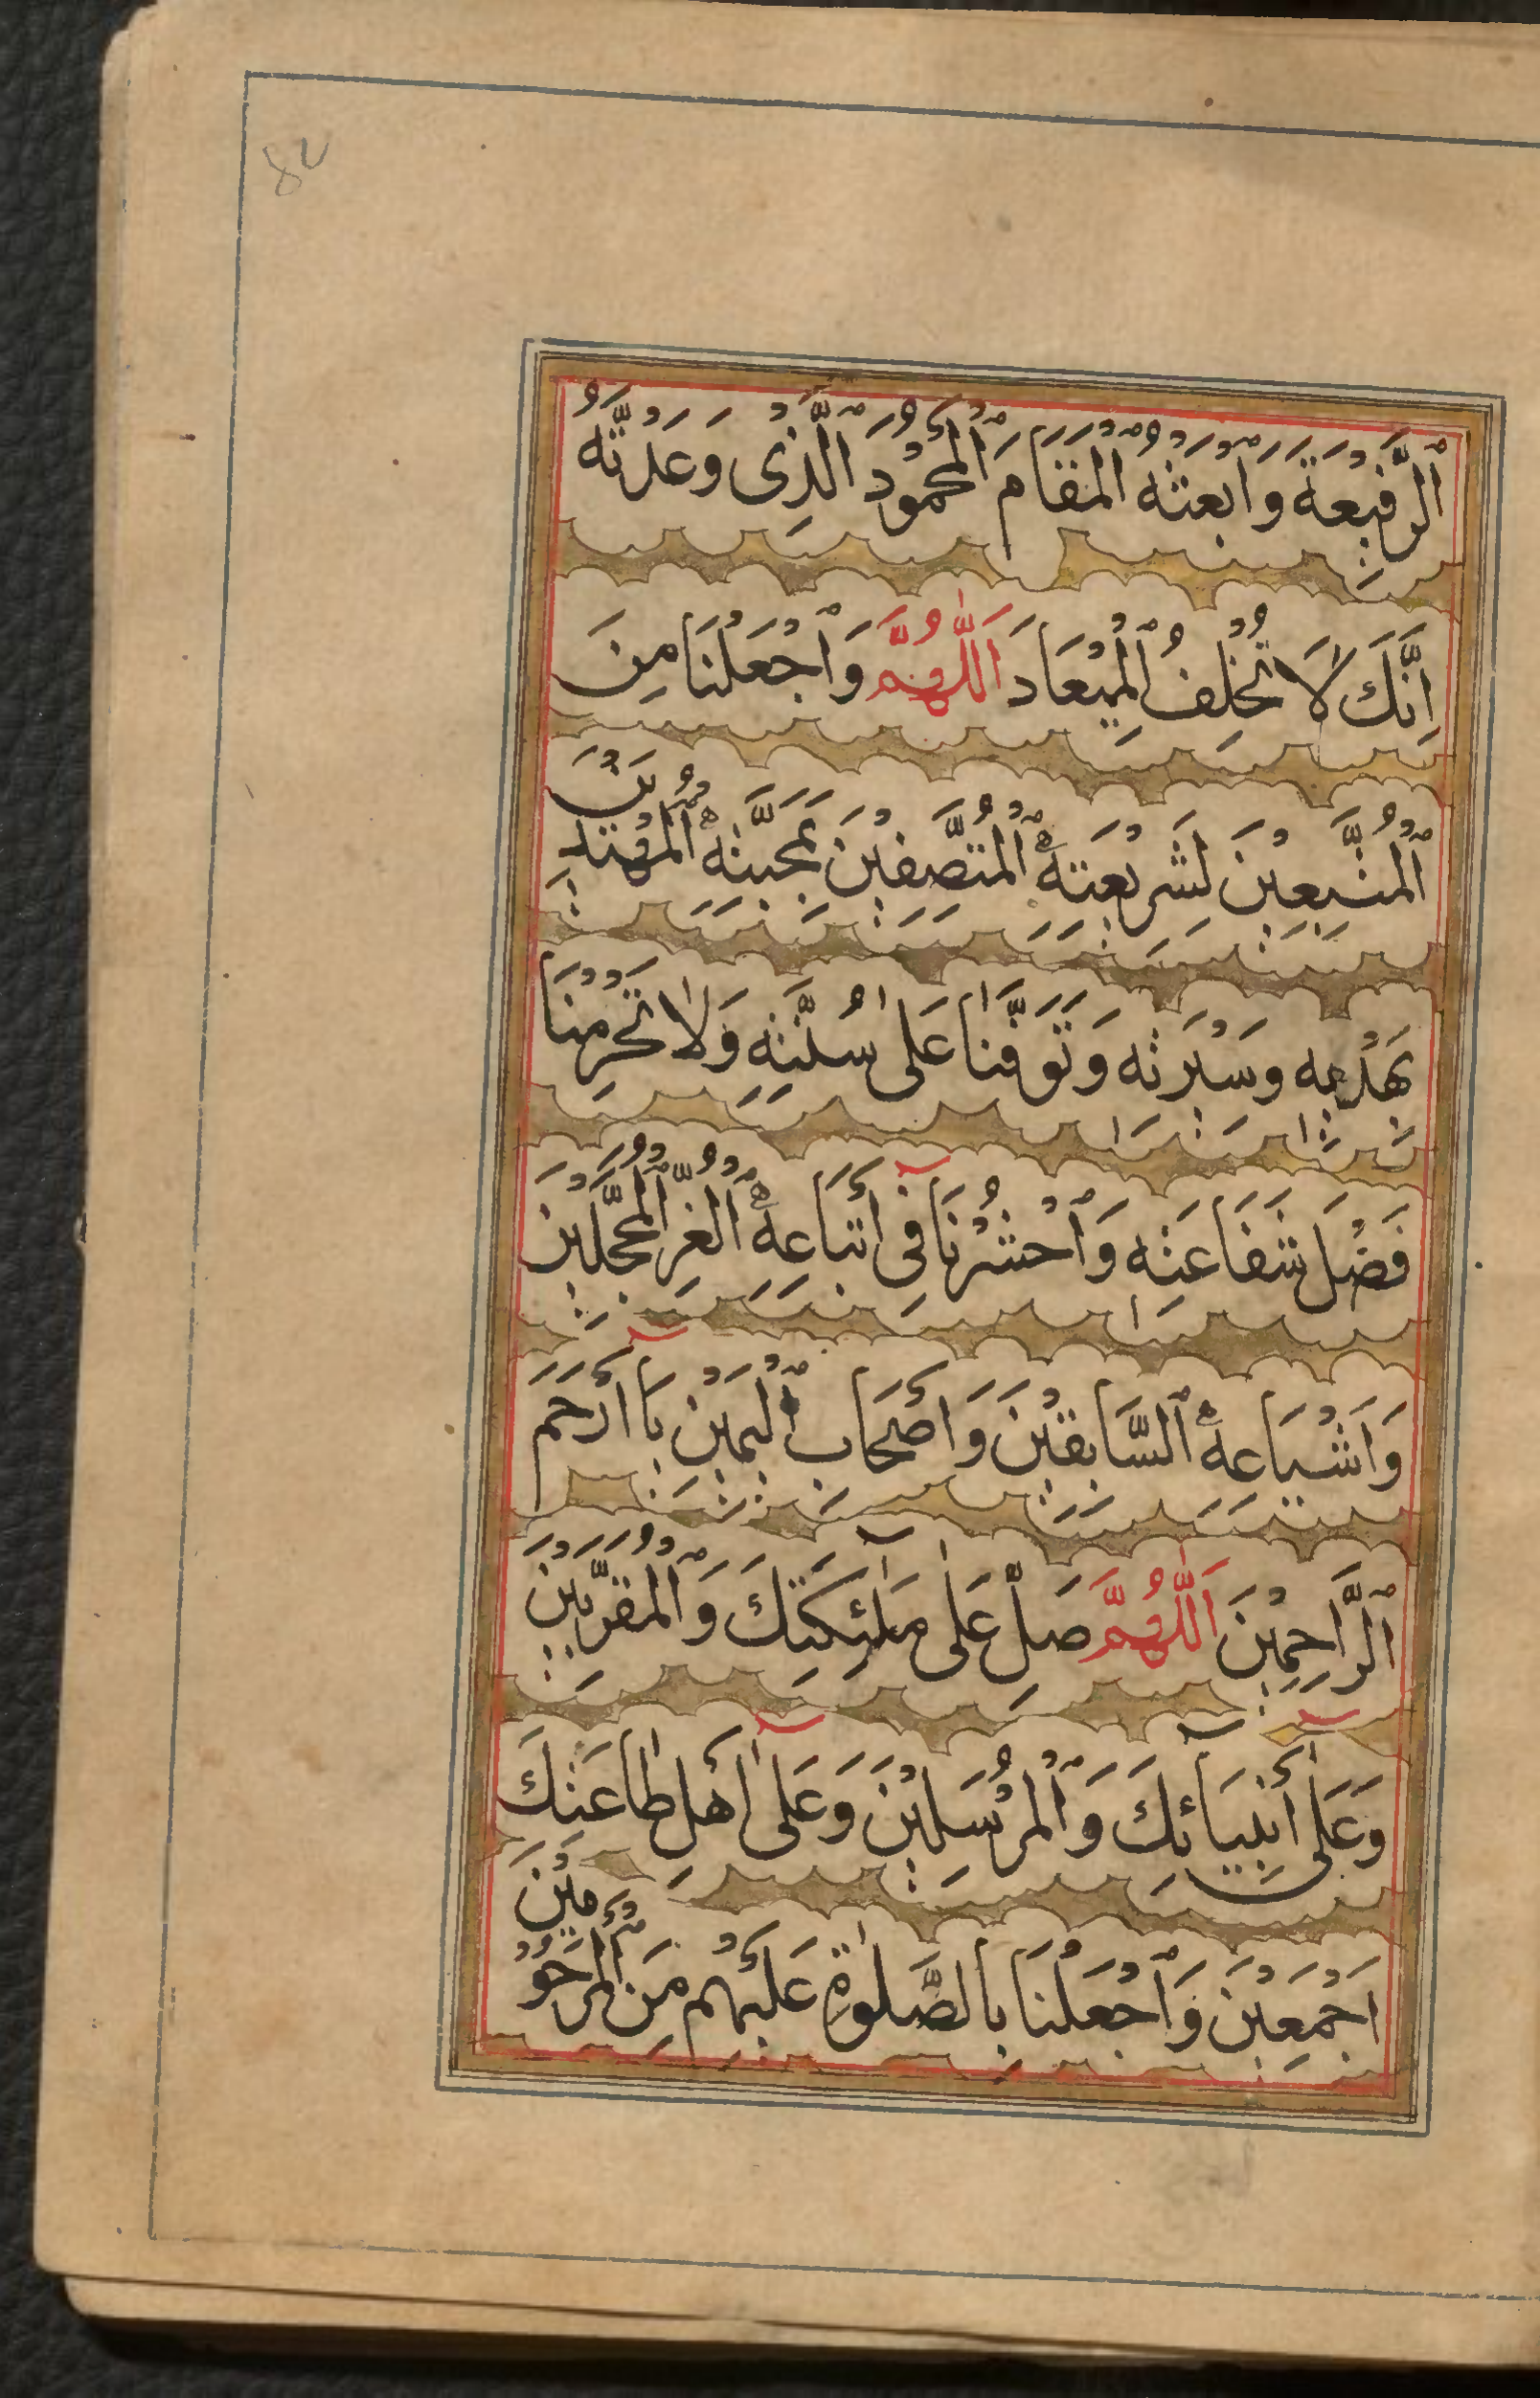 اَلرَّفِيْعَةَ وَابْعَثْهُ الْمَقَامَ الْمَحْمُوْدَ الَّذِىْ وَعَدْتَّهٗ
اِنَّكَ لَا تُخْلِفُ الْمِيْعَادَ اَللّٰهُمَّ وَاجْعَلْنَا مِنَ
الْمُتَّبِعِيْنَ لِشَرِيْعَتِهِ الْمُتَّصِفِيْنَ بِمَحَبَّتِهِ الْمُهْتَدِيْنَ
بِهَدْيِهٖ وَسِيْرَتِهٖ وَتَوَفَّنَا عَلٰى سُنَّتِهٖ وَلَا تَحْرِمْنَا
فَضْلَ شَفَاعَتِهٖ وَاحْشُرْنَا فِىْ اَتْبَاعِهِ الْغُرِّ الْمُحَجَّلِيْنَ
وَاَشْيَاعِهِ السَّابِقِيْنَ وَاَصْحَابِ الْيَمِيْنِ يَا اَرْحَمَ
الرَّاحِمِيْنَ اَللّٰهُمَّ صَلِّ عَلٰى مَلٰئِكَتِكَ وَالْمُقَرَّبِيْنَ
وَعَلٰى اَنْبِيَائِكَ وَالْمُرْسَلِيْنَ وَعَلٰى اَهْلِ طَاعَتِكَ
اَجْمَعِيْنَ وَاجْعَلْنَا بِالصَّلٰوةِ عَلَيْهِمْ مِنَ الْمَرْحُوْمِيْنَ